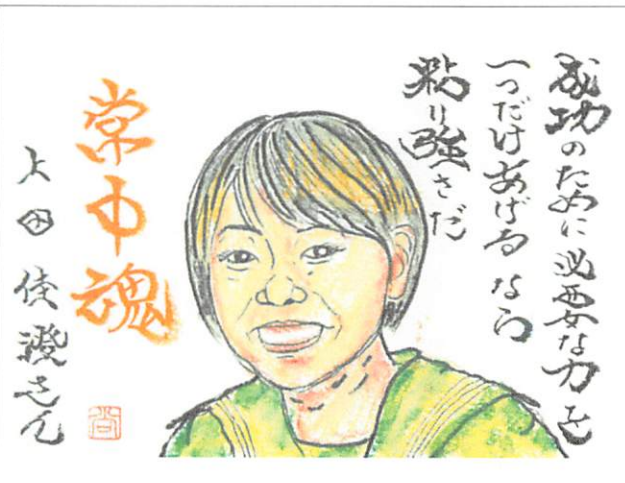 成功のために必要な力を
一つだけあげるなら
粘り強さだ
常中魂
上田倖澄さん
尚